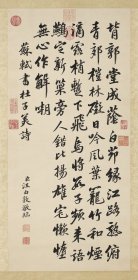 背郭堂成蔭白茆緣江路熟俯
青郊榿林礙日吟風葉籠竹和煙
滴露梢暫下飛烏將數子頻來語
鷰定新巢旁人錯比楊雄宅懶墮
無心作解嘲
蘇軾書杜子美詩
臣汪由敦敬臨